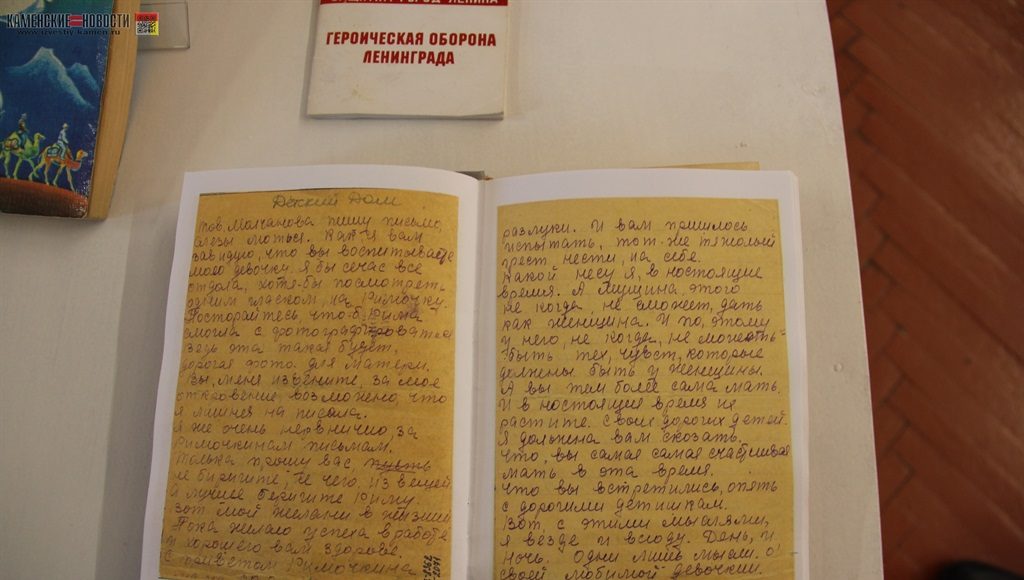 КАМЕНСКИЕ НОВОСТИ
www.izvestiy-kamen.ru
ЗАЩИТИМ ГОРОД ЛЕНИНА
ГЕРОИЧЕСКАЯ ОБОРОНА
ЛЕНИНГРАДА
Деский Дом
тов. Молчанова пишу письмо,
слезы лються. Как я вам
завидую, что вы воспитываете
мою девочку. Я бы сечас все
отдола, хотя-бы посмотреть
одним гласком, на Римочку.
Посторайтесь, что-б, Рима
смогла с фотографироватся
ведь эта такая будет,
дорогая фото для матери.
Вы, меня извените, за мое
откровение, возможено, что
я лишнея на писала.
Я же очень нервничию, за
Римочкинам письмам.
Только прошу вас, пусть
не беригите, не чего, из вещей
а лучше беригите Риму.
Вот мой желани в жизни
Пока желаю успеха в работе
и хорошего вам здоровье.
С приветом Римочкина
разлуки. И вам пришлось
испытать, тот же тяжолый
крест нести, на себе.
Какой несу я, в настоящие
время. А Мущина, этого
не когда, не сможет, дать
как женщина. И по, этому
у него, не когда, не может
быть тех, чувст, которые
должены быть у женщины.
А вы тем более сама мать.
И в настоящие время не
растите. Своих дорогих детей.
Я должена вам сказать.
Что, вы самая самая счастливая
мать в эта время.
Что вы встретились, опять
с дорогими детишками.
Вот, с этими мыслями,
я везде и всюду. День, и
ночь. Одни лишь мысли. О
своей любимой девочки.